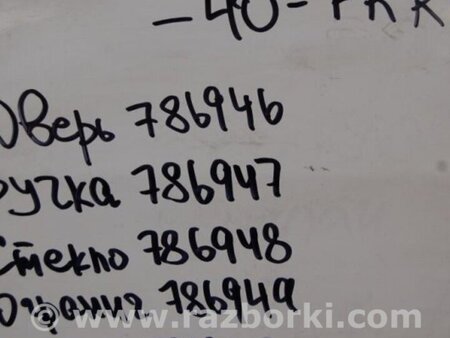 -40-
Дверь 786946
Ручка 786947
Стекло 786948
786949
www.razborki.com